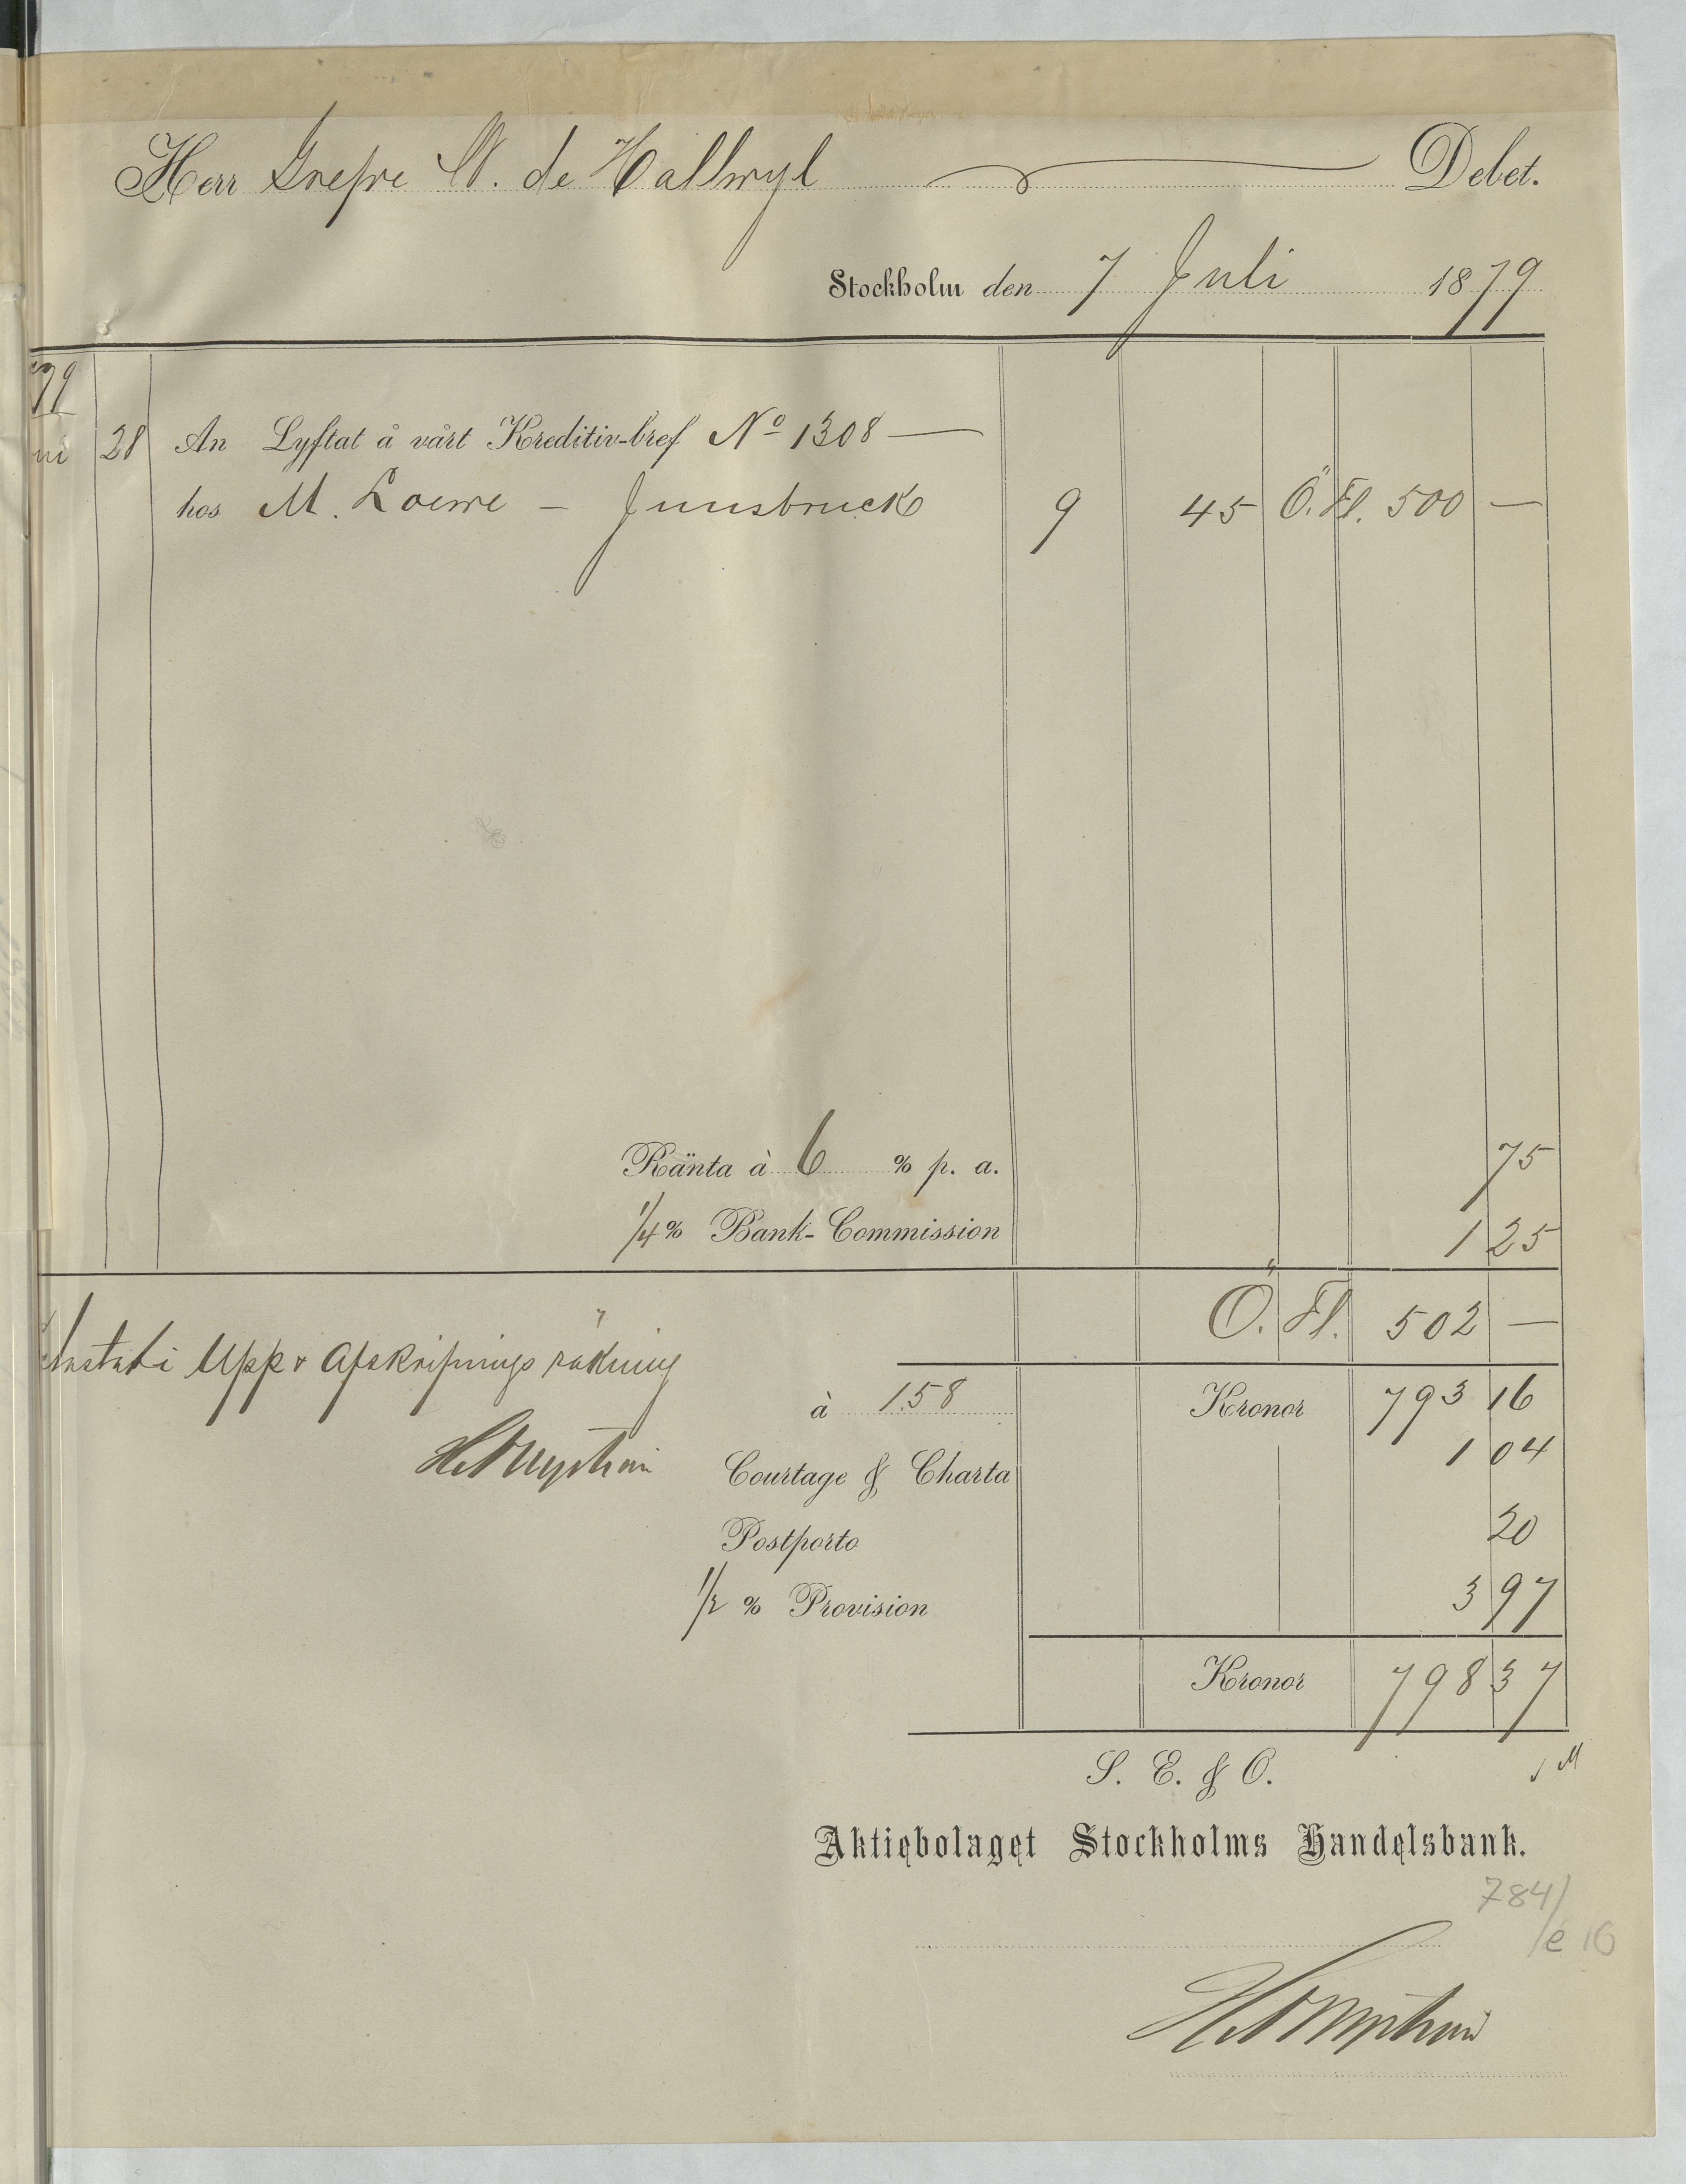 Herr Grefve W. de Hallwyl Debet.
Stockholm den 7 Juli 1879
79
ni 28 An Lyftat å vårt Kreditiv-bref No 1308 —
hos M. Loewe — Innsbruck 9 45 Ö. Fl. 500 —
Ränta à 6 % p. a. 75
1/4 % Bank-Commission 1 25
Ö. Fl. 502 —
i Upp & Afskrifnings räkning
à 1.58 Kronor 793 16
Courtage & Charta 1 04
Postporto 20
1/2 % Provision 3 97
Kronor 798 37
S. E. & O.
Aktiebolaget Stockholms Handelsbank.
784/
e 10